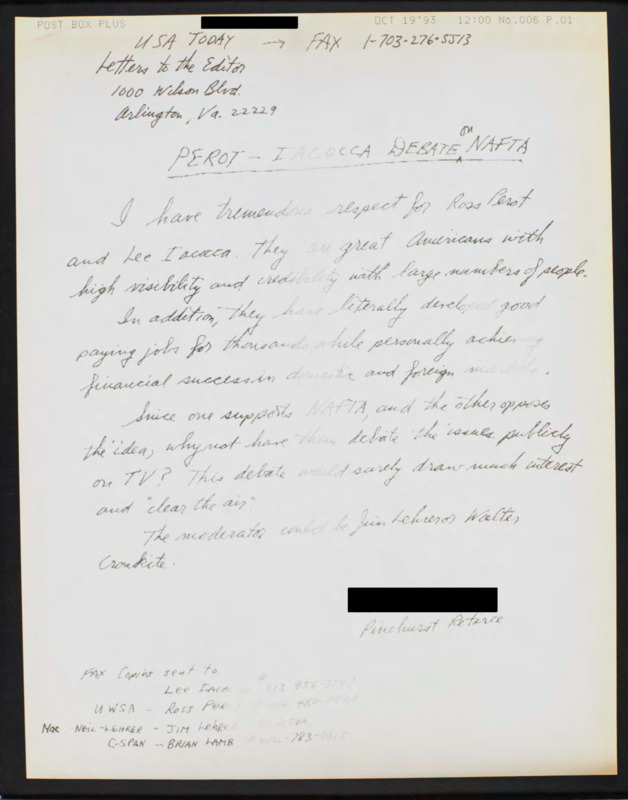 POST BOX PLUS OCT 19'93 12:00 No.006 P.01
USA TODAY → FAX 1-703-276-5513
Letters to the Editor
1000 Wilson Blvd.
Arlington, Va. 22229
PEROT - IACOCCA DEBATE on NAFTA
I have tremendous respect for Ross Perot
and Lee Iacocca. They are great Americans with
high visibility and credibility with large numbers of people.
In addition, they have literally developed good
paying jobs for thousands while personally achieving
financial success in domestic and foreign markets.
Since one supports NAFTA, and the other opposes
the idea, why not have them debate the issues publicly
on TV? This debate would surely draw much interest
and "clear the air".
The moderator could be Jim Lehrer or Walter
Cronkite.
Pinehurst Retiree
FAX Copies sent to
Lee Iaco
UWSA - Ross Per
Mac Neil-LEHRER - JIM Lehrer
C-SPAN - BRIAN LAMB